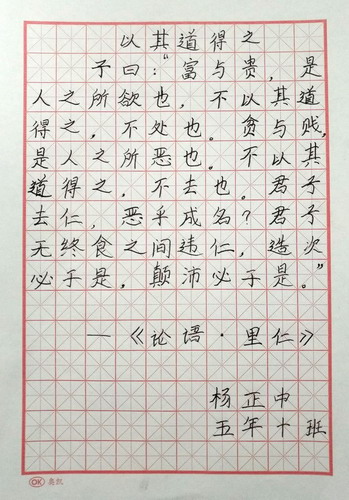 以其道得之
子曰：“富与贵，是
人之所欲也，不以其道
得之，不处也。贫与贱，
是人之所恶也。不以其
道得之，不去也。君子
去仁，恶乎成名？君子
无终食之间违仁，造次
必于是，颠沛必于是。”
—《论语·里仁》
杨正中
五年十班
OK 奥凯